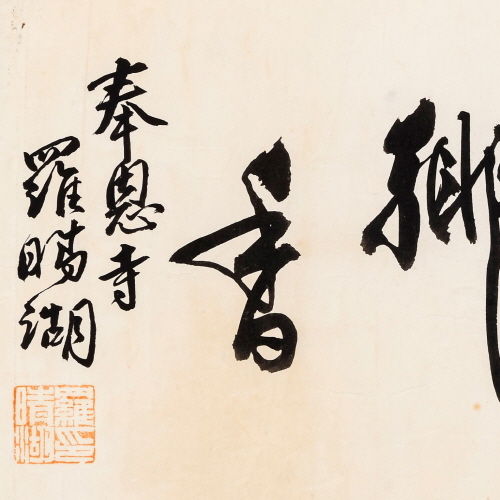 香
奉恩寺
羅晴湖
羅印
晴湖